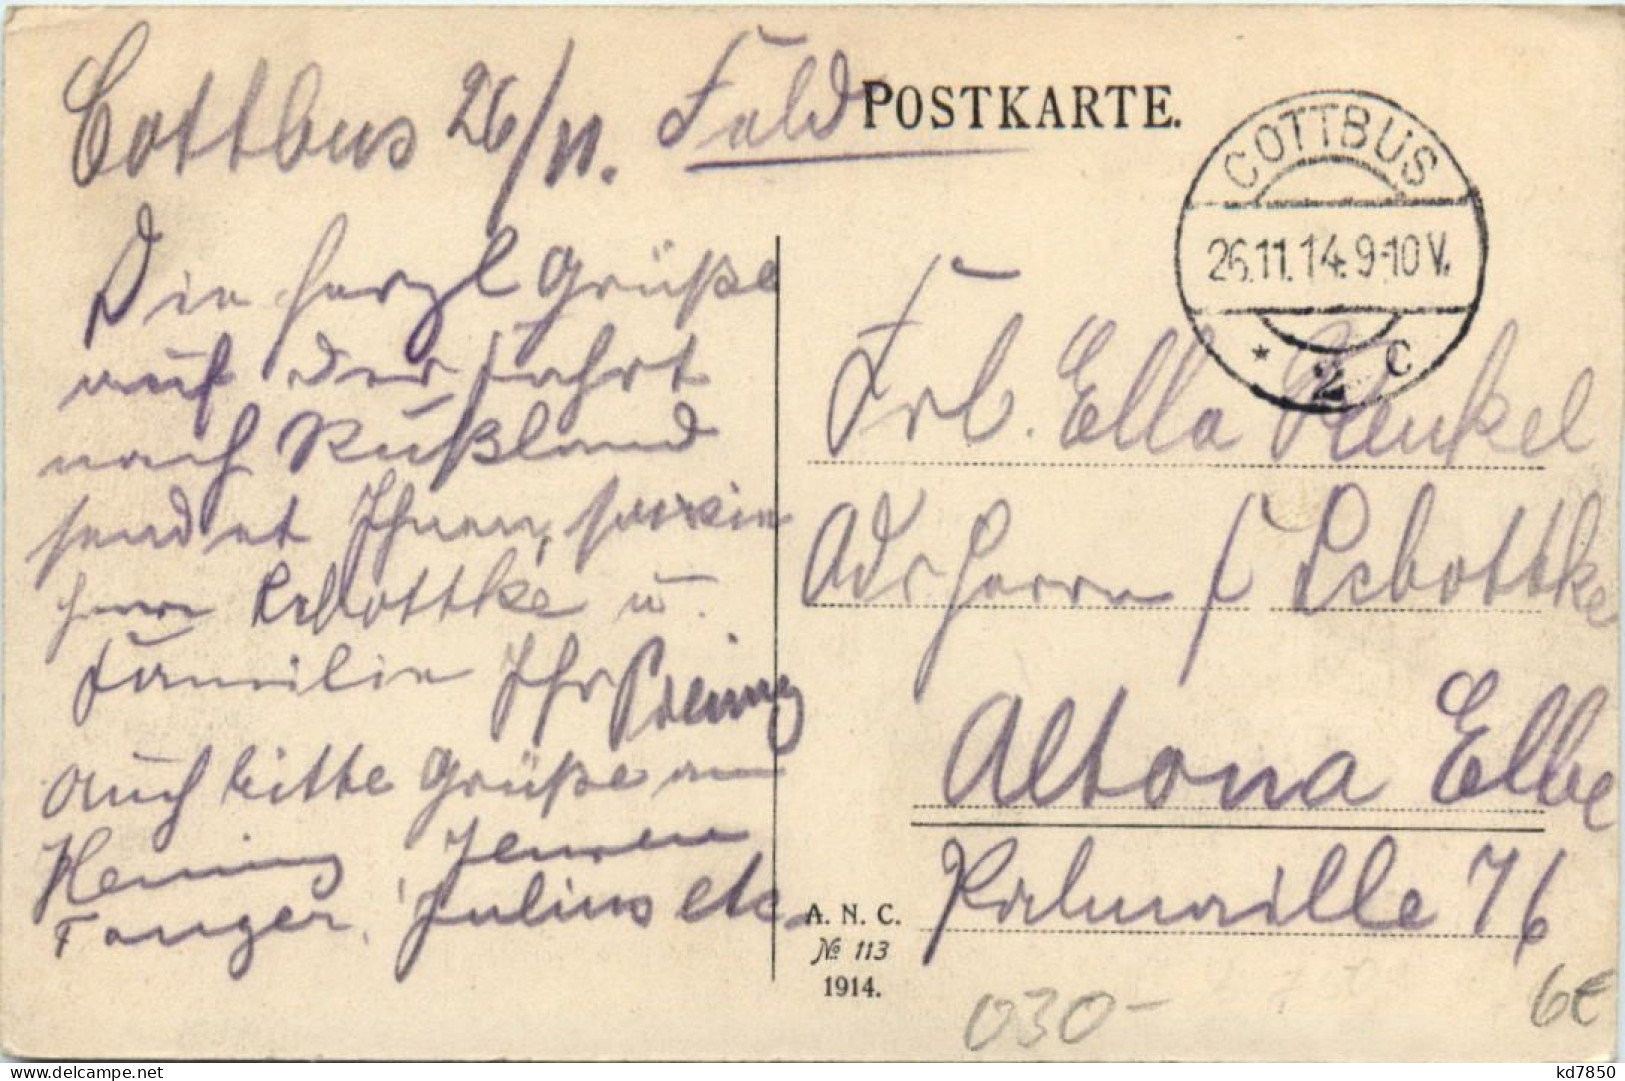 Cottbus 26/11. Feld
POSTKARTE.
COTTBUS
26.11.14. 9-10 V.
* 2 c
Die herzl Grüße
auf der Fahrt
nach Rußland
sendet Ihnen, sowie
Herrn Schottke u.
Familie Ihr
Auch bitte Grüße an
Henning, Jensen
Tanger, Julius etc
Frl. Ella Henkel
Adr Herrn Schottke
Altona Elbe
Palmaille 76
A. N. C.
№ 113
1914.
030-
6€
www.delcampe.net
kd7850